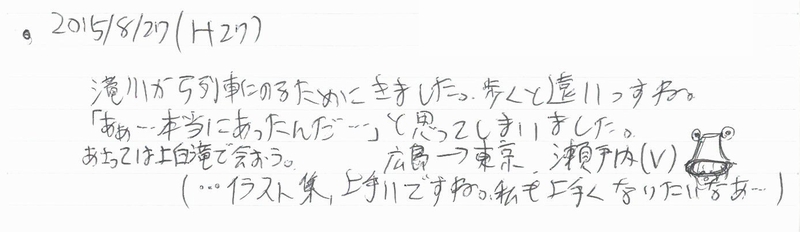 2015/8/27(H27)
滝川から列車にのるためにきました。歩くと遠いっすね。
「あぁ…本当にあったんだ…」と思ってしまいました。
あさっては上白滝で会おう。 広島→東京 瀬戸内(V)
(…イラスト集、上手いですね。私も上手くなりたいなあ…)